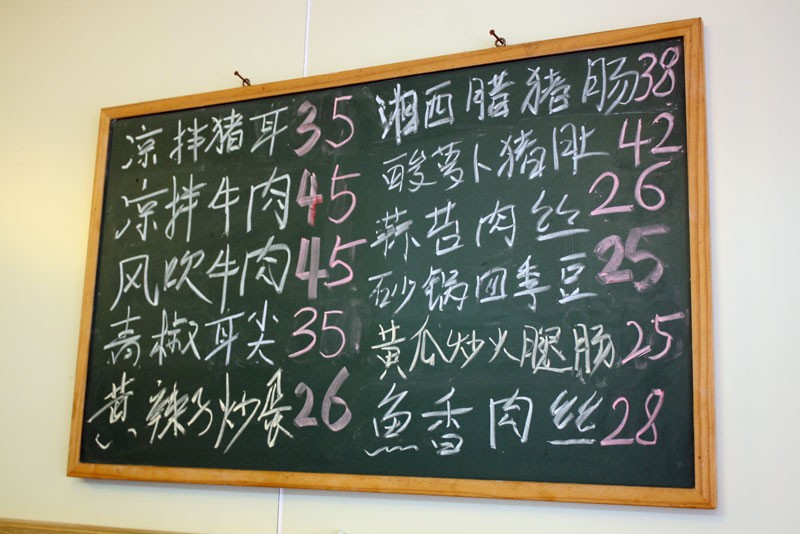 凉拌猪耳35
凉拌牛肉45
风吹牛肉45
青椒耳尖35
黄辣子炒蛋26
湘西腊猪肠38
酸萝卜猪肚42
蒜苔肉丝26
砂锅四季豆25
黄瓜炒火腿肠25
鱼香肉丝28